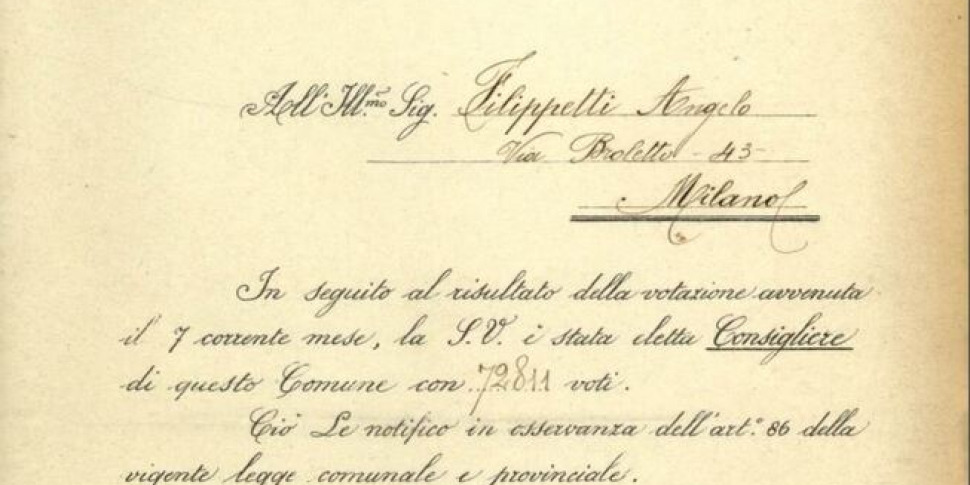 All' Ill.mo Sig. Filippetti Angelo
Via Broletto - 43 -
Milano
In seguito al risultato della votazione avvenuta
il 7 corrente mese, la S.V. è stata eletta Consigliere
di questo Comune con 72811 voti.
Ciò Le notifico in osservanza dell'art.° 86 della
vigente legge comunale e provinciale.